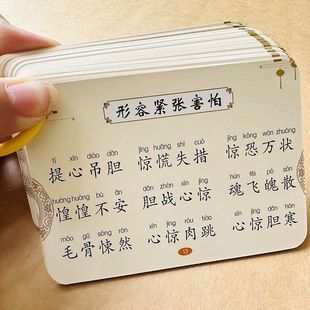 形容紧张害怕
tí xīn diào dǎn jīng huāng shī cuò jīng kǒng wàn zhuàng
提心吊胆 惊慌失措 惊恐万状
huánghuáng bù ān dǎn zhàn xīn jīng hún fēi pò sàn
惶惶不安 胆战心惊 魂飞魄散
máo gǔ sǒng rán xīn jīng ròu tiào xīn jīng dǎn hán
毛骨悚然 心惊肉跳 心惊胆寒
13